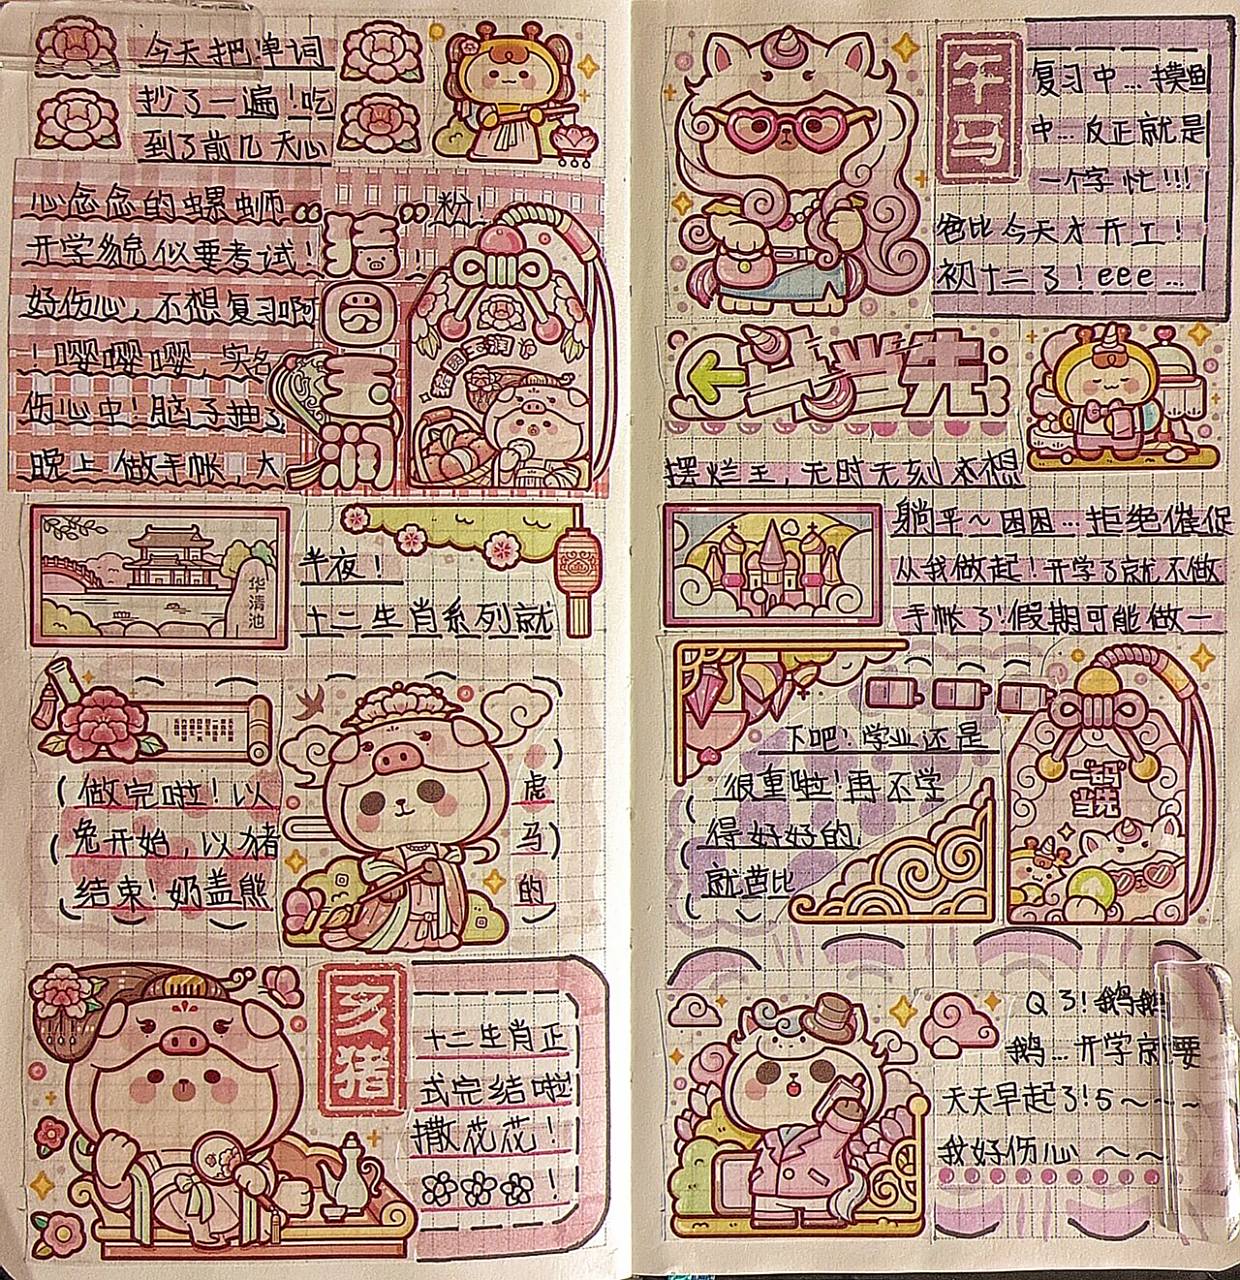 今天把单词
抄了一遍！吃
到了前几天心
心念念的螺蛳“粉！
开学貌似要考试！
好伤心，不想复习啊
！嘤嘤嘤，实名
伤心中！脑子抽了
晚上做手帐，大
珠圆玉润
珠圆玉润
华清池
半夜！
十二生肖系列就
（做完啦！以 虎
（兔开始，以猪 马）
结束！奶盖熊 的
亥猪
十二生肖正
式完结啦
撒花花！
！
午马
复习中…摸鱼
中…反正就是
一个字 忙！！！
爸比今天才开工！
初十二了！eee…
一马当先
摆烂王，无时无刻不想
躺平～困困…拒绝催促
从我做起！开学了就不做
手帐了！假期可能做一
下吧！学业还是
很重啦！再不学
得好好的，
就芭比
一马当先
Q了！鹅鹅
鹅…开学就要
天天早起了！5～～～
我好伤心～～